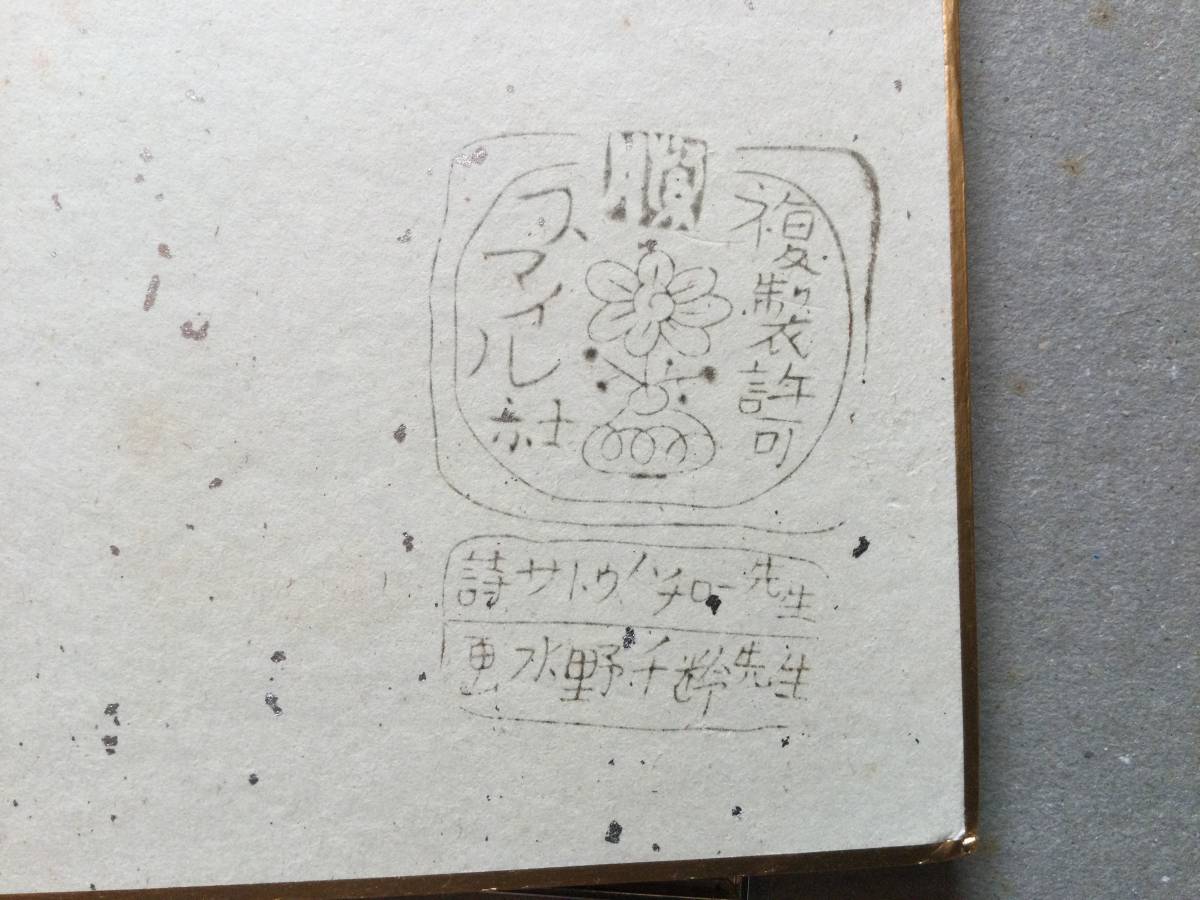 複製許可
スマイル社
詩サトウハチロー先生
画水野千 先生